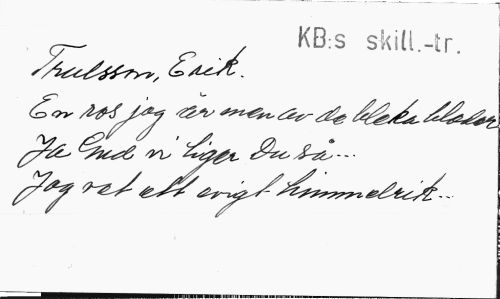 KB:s skill.-tr.
Thulsson, Erik.
En ros jag är men av de bleka blader
Ja Gud vi liger Du så...
Jag vet ett evigt himmelrik...